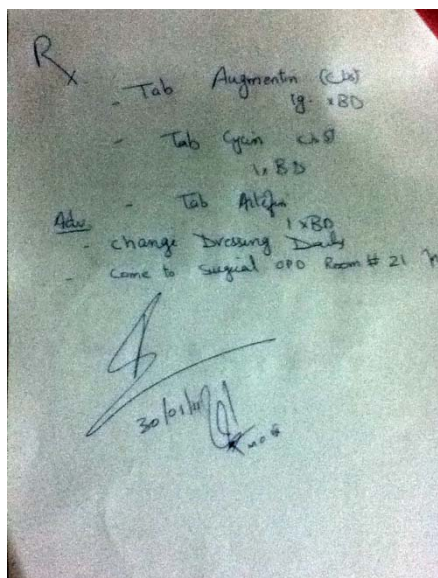 Rx
- Tab Augmentin (cbs)
1g. x BD
- Tab Cycin
1 x BD
- Tab Artifen
1 x BD
Adv.
- change Dressing Daily
- come to Surgical OPD Room # 21
30/01/11